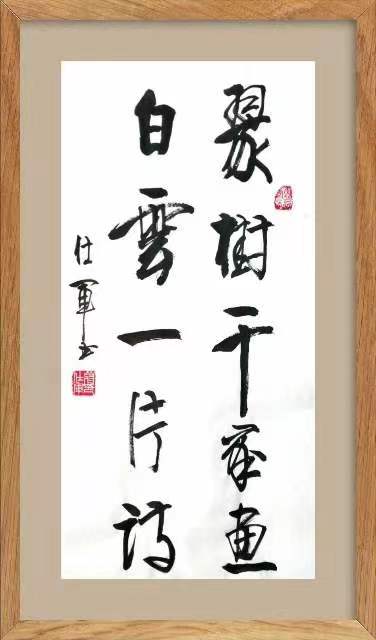 翠樹千峯畫
白雲一片詩
仕軍书